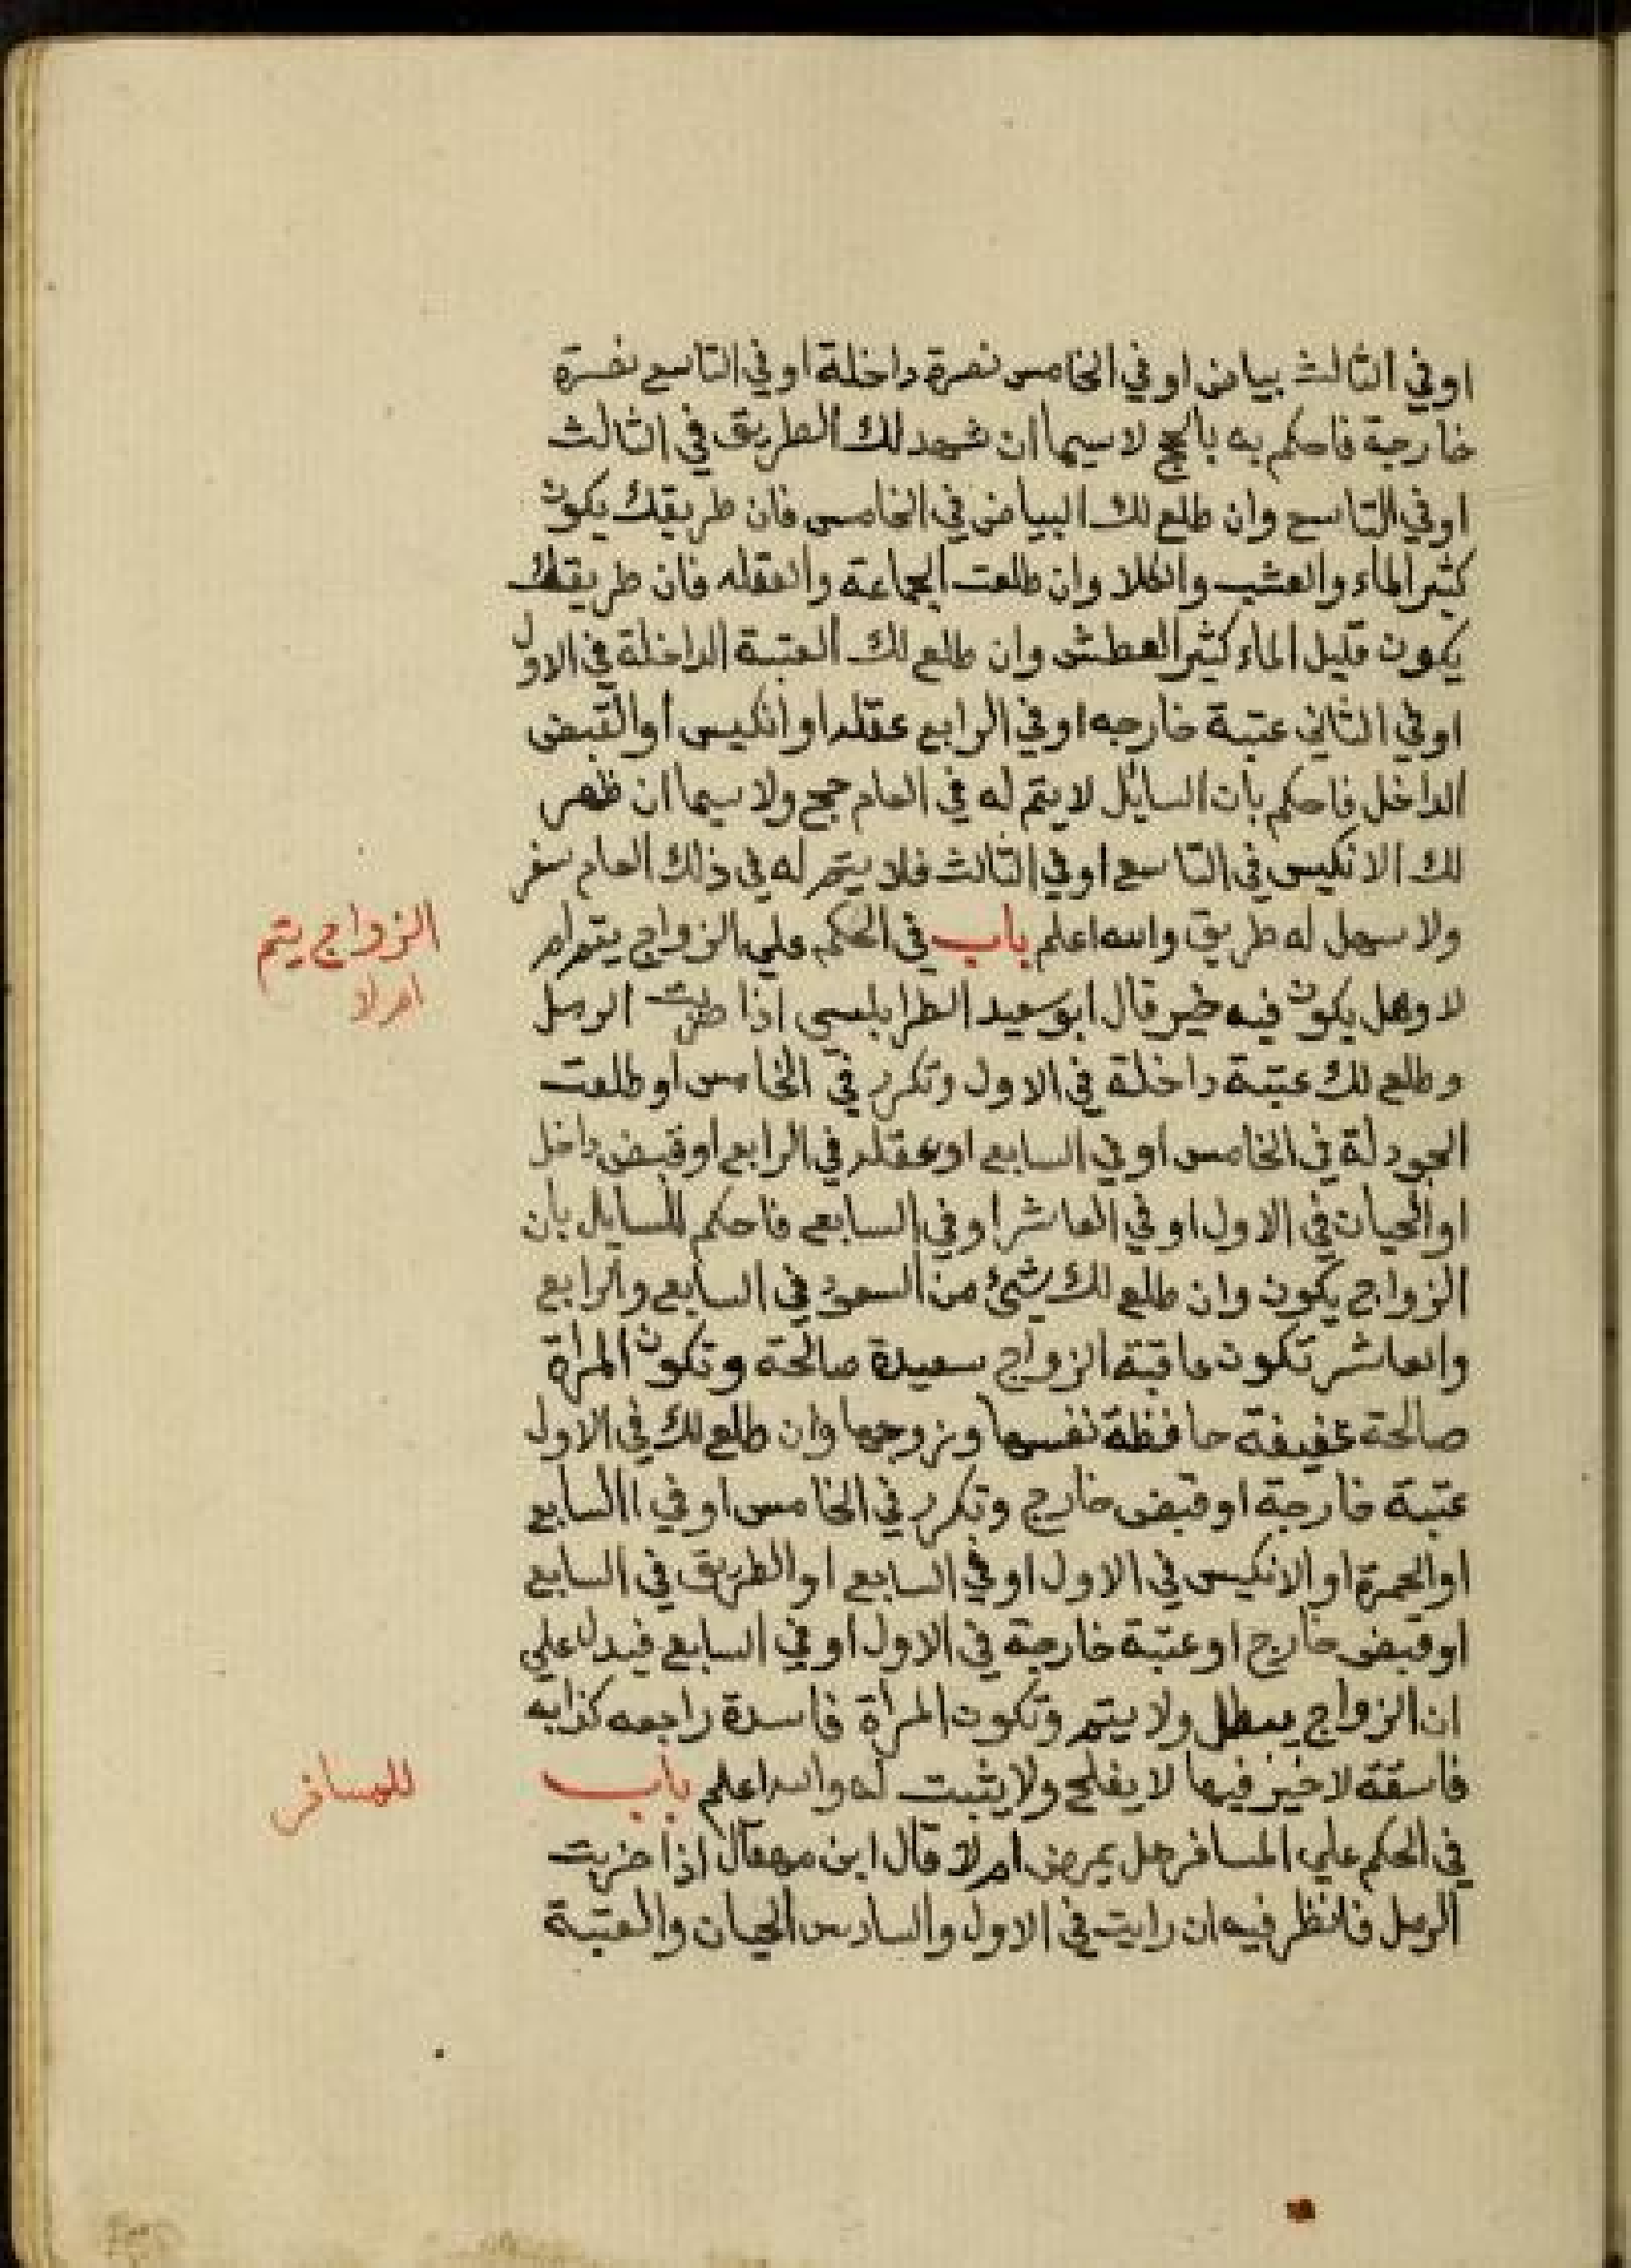 اوفي الثالث بياض اوفي الخامس نصرة داخلة اوفي التاسع نصرة
خارجة فاحكم به بالحج لاسيما ان شهد لك الطريق في الثالث
اوفي التاسع وان طلع لك البياض في الخامس فان طريقك يكون
كثير الماء والعشب والكلا وان طلعت الجماعة والعقله فان طريقك
يكون قليل الماء كثير العطش وان طلع لك العتبة الداخلة في الاول
اوفي الثاني عتبة خارجه اوفي الرابع عقله او انكيس او القبض
الداخل فاحكم بان السايل لا يتم له في العام حج ولا سيما ان ظهر
لك الانكيس في التاسع اوفي الثالث فلا يتم له في ذلك العام سفر
ولا سهل له طريق والله اعلم باب في الحكم علي الزواج يتم ام
الزواج يتم
ام لا
لا وهل يكون فيه خير قال ابو سعيد الطرابلسي اذا ضربت الرمل
وطلع لك عتبة داخلة في الاول وتكرر في الخامس او طلعت
الجودلة في الخامس او في السابع او عقله في الرابع او قبض داخل
او الحيان في الاول او في العاشر او في السابع فاحكم للسايل بان
الزواج يكون وان طلع لك شئ من السعود في السابع والرابع
والعاشر تكون عاقبة الزواج سعيدة صالحة وتكون المراة
صالحة عفيفة حافظة نفسها وزوجها وان طلع لك في الاول
عتبة خارجة او قبض خارج وتكرر في الخامس او في االسابع
او الحمرة او الانكيس في الاول او في السابع او الطريق في السابع
او قبض خارج او عتبة خارجة في الاول او في السابع فيدل علي
ان الزواج يبطل ولا يتم وتكون المراة فاسدة راجعه كذابه
فاسقة لا خير فيها لا يفلح ولا يثبت له والله اعلم باب
للمسافر
في الحكم علي المسافر هل يمرض ام لا قال ابن مهقال اذا ضربت
الرمل فانظر فيه ان رايت في الاول والسادس الحيان والعتبة